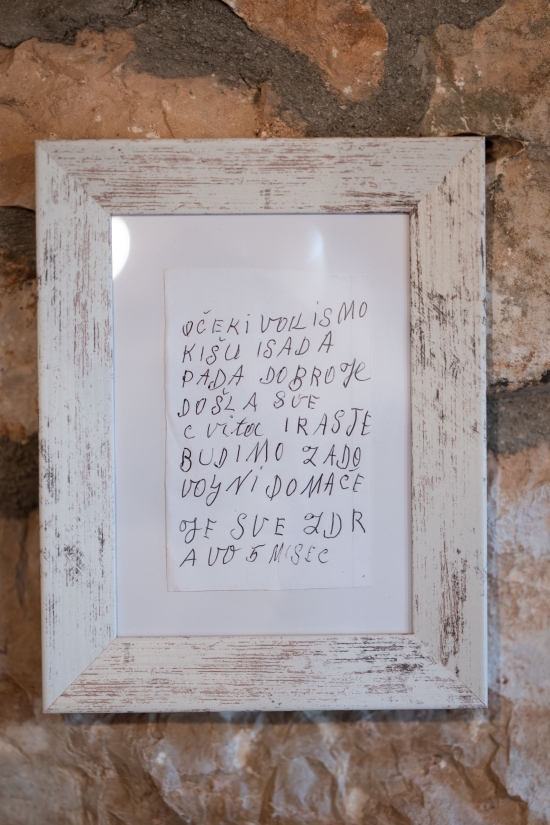 OČEKİ VOLLISMO
KIŠU ISADA
PADA DOBROJE
DOŠLA SVE
c vita IRASTE
BUDIMO ZADO
VOYNİ DOMAĆE
JE SVE ZDR
AVO 5 MISEC